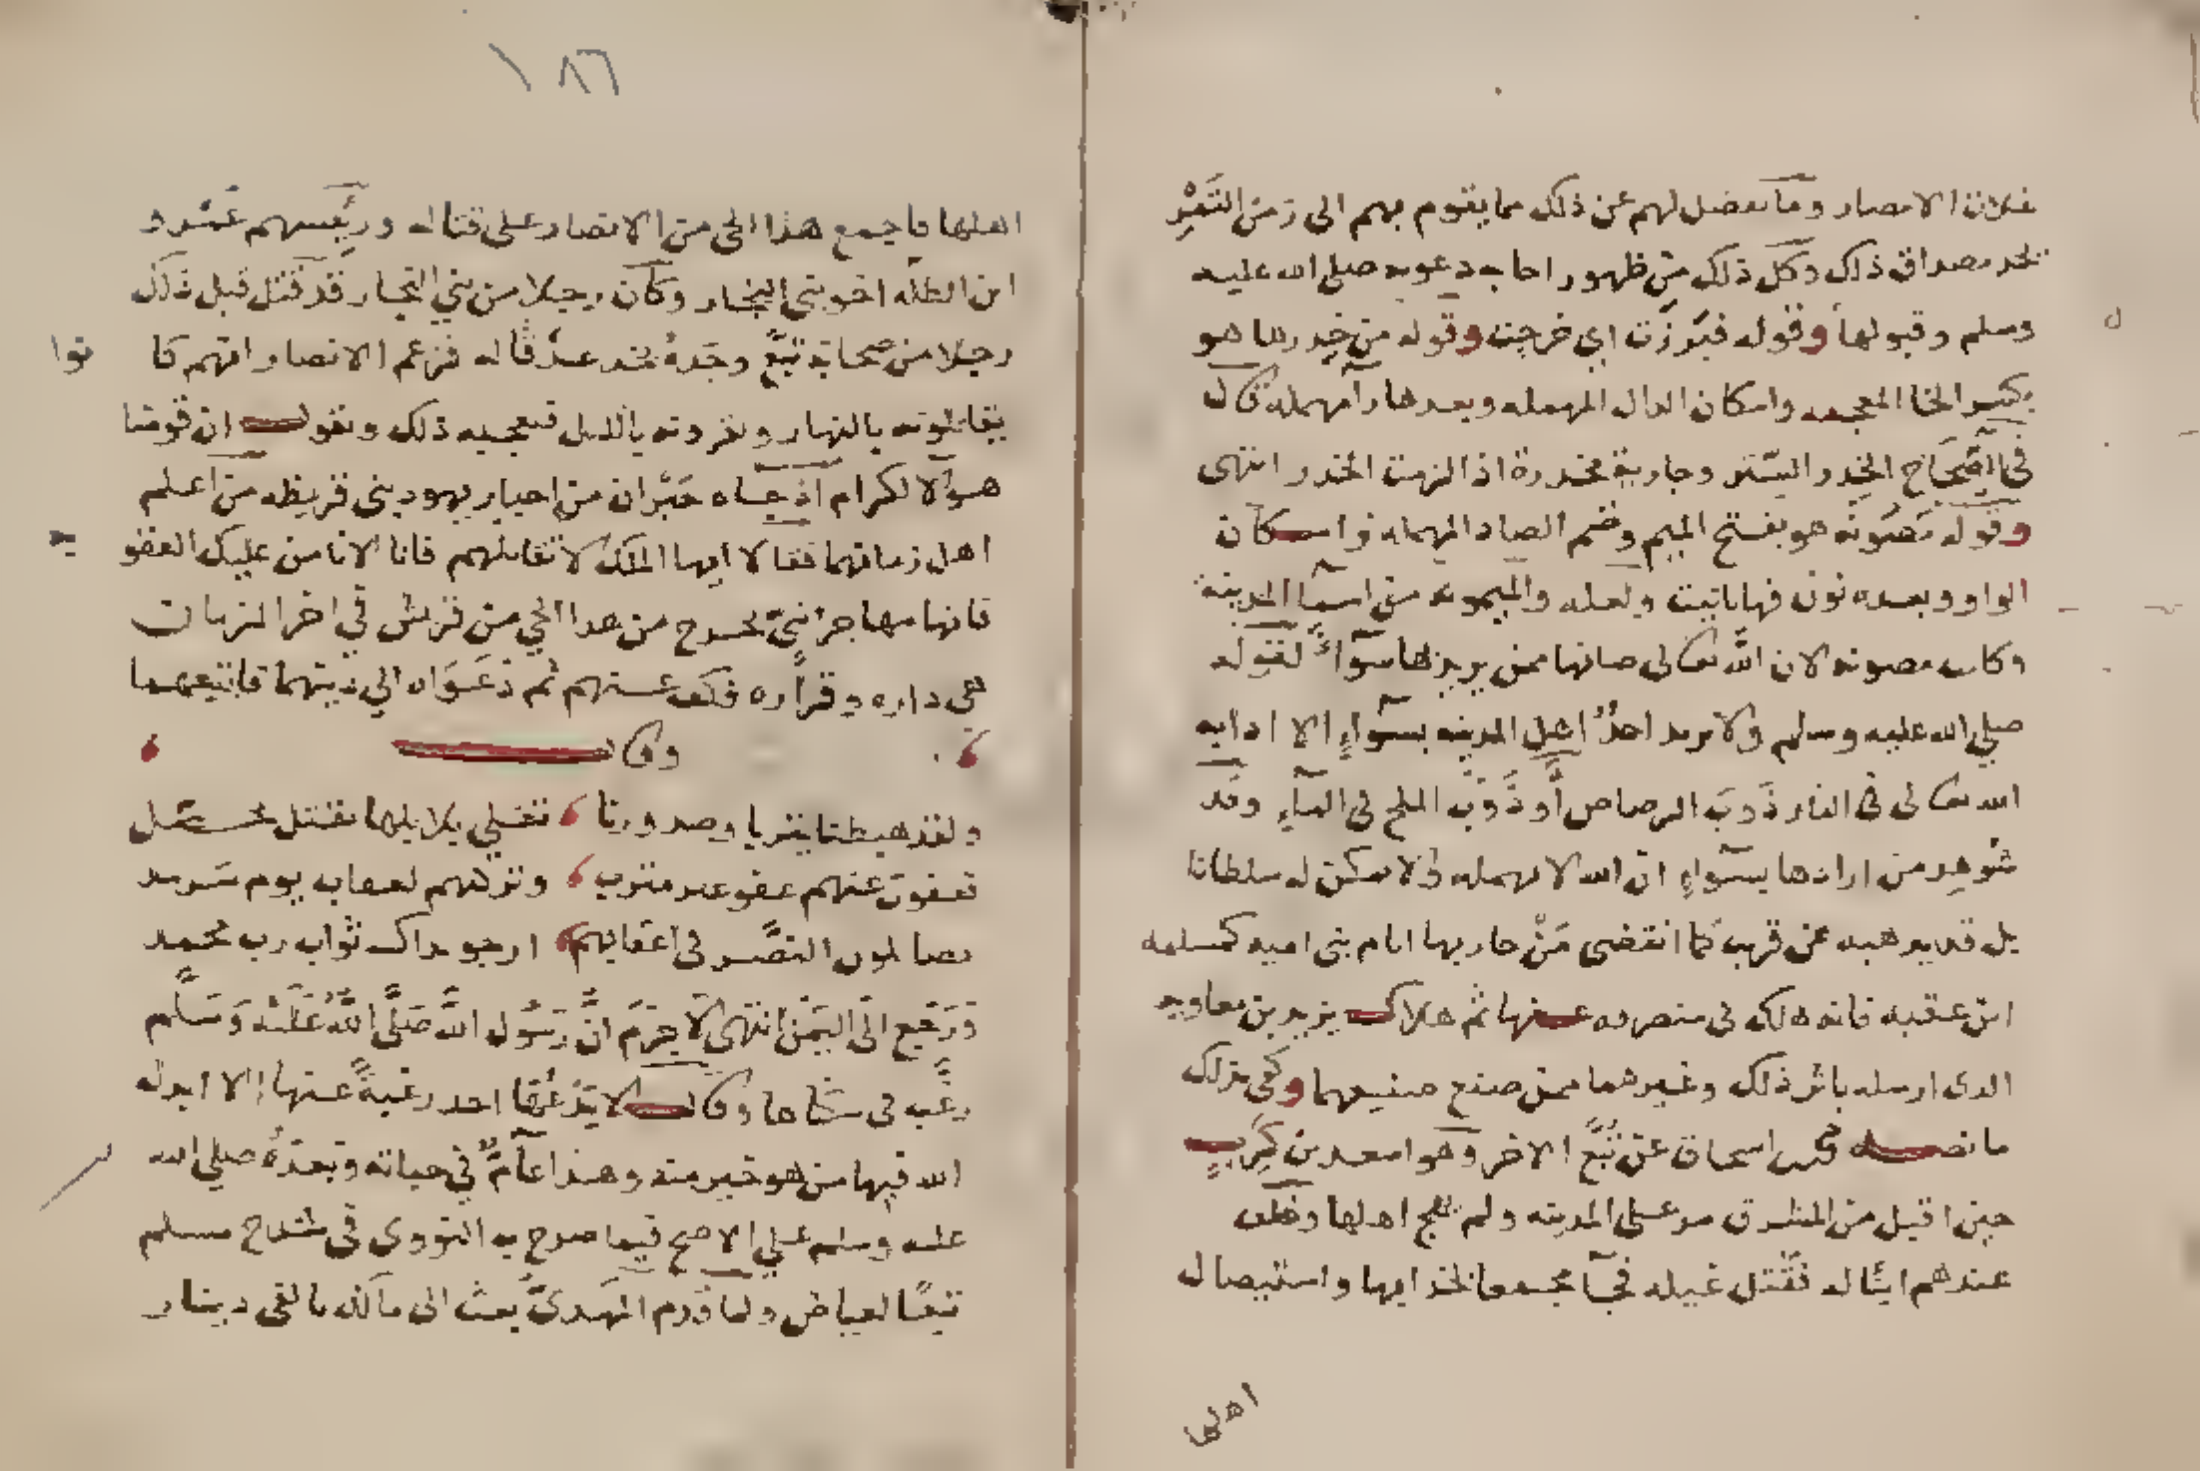 فلان الانصار وما يفضل لهم عن ذلك مما يقوم بهم الى زمن التمر
تجد مصداق ذلك وكل ذلك من ظهور اجابه دعوته صلى الله عليه
وسلم وقبولها وقوله فبرزت اي خرجت وقوله من خدرها هو
بكسر الخا المعجمه واسكان الدال المهمله وبعدها رآ مهمله قال
في الصحاح الخدر الستر وجارية مخدرة اذا لزمت الخدر انتهى
وقوله مصونه هو بفتح الميم وضم الصاد المهمله واسكان
الواو وبعده نون فها تانيث ولعله والميمونه من اسما المدينة
وكانت مصونه لان الله تعالى صانها ممن يريدها بسواء لقوله
صلى الله عليه وسلم ولا يريد احد اهل المدينه بسواء الا اذابه
الله تعالى في النار ذوب الرصاص او ذوب الملح في الماء وقد
شوهد من ارادها بسواء ان الله لا يمهله ولا يمكن له سلطانا
بل قد يذهبه عن قرب كما انقضى من حاربها ايام بني اميه كمسلمه
ابن عقبه فانه هلك في منصرفه عنها ثم هلاك يزيد بن معاويه
الذي ارسله باثر ذلك وغيرهما ممن صنع صنيعهما وكفى بذلك
ما نصه اسحاق عن تبع الاخر وهو اسعد بن كرب
حين اقبل من المشرق مر على المدينه ولم يهج اهلها وخلف
عندهم ابنا له فقتل غيله فجآ مجمعا لخرابها واستيصال
اهلها
١٨٦
اهلها فاجمع هذا الحي من الانصار على قتاله ورئيسهم عمرو
ابن الطله اخو بني النجار وكان رجلا من بني النجار قد قتل قبل ذلك
رجلا من صحابة تبع وجده يجد عذقا له فزعم الانصار انهم كا
نوا
يقاتلونه بالنهار ويقرونه بالليل فيعجبه ذلك ويقول ان قومنا
هولا لكرام اذ جاه حبران من احبار يهود بني قريظه من اعلم
اهل زمانهما فقالا ايها الملك لا تقاتلهم فانا لا نامن عليك العقو
بة
فانها مهاجر نبي يخرج من هذا الحي من قريش في اخر الزمان
هي داره وقراره فكف عنهم ثم دعواه الى دينهما فاتبعهما
وقال
ولقد هبطنا يثربا وصدورنا تغلي بلابلها بقتل محصل
فعفوت عنهم عفو غير مثرب وتركتهم لعقاب يوم سرمد
النصر في اعقابهم ارجو بذاك ثواب رب محمد
ورجع الى اليمن انتهى لا جرم ان رسول الله صلى الله عليه وسلم
رغب في سكناها وقال لا يدعها احد رغبة عنها الا ابدله
الله فيها من هو خير منه وهذا عام في حياته وبعده صلى الله
عليه وسلم على الاصح فيما صرح به النووي في شرح مسلم
تبعا لعياض ولما قدم المهدي بعث الى مالك بالفي دينار